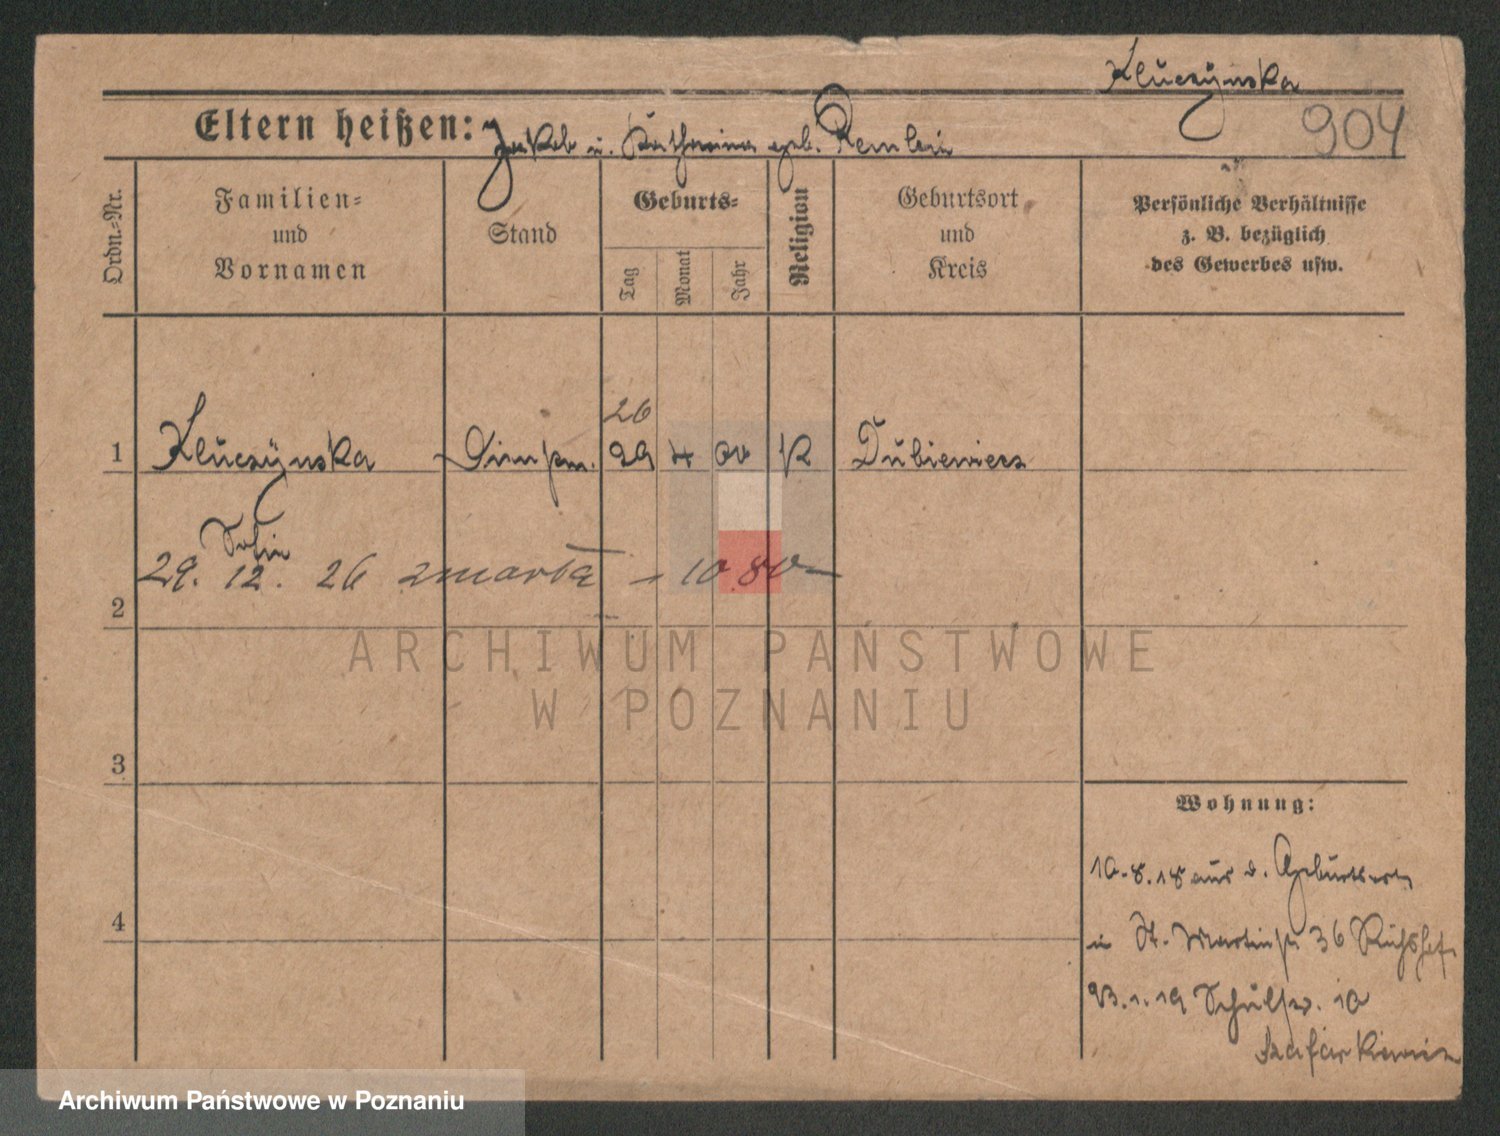 Kluczÿnska
904
Eltern heißen: Jakob u. Katharina geb. Remlein
Ordn.-Nr.
Familien-
und
Vornamen
Stand
Geburts-
Tag
Monat
Jahr
Religion
Geburtsort
und
Kreis
Persönliche Verhältnisse
z. B. bezüglich
des Gewerbes usw.
26
1 Kluczÿnska Dienstm. 29 4 00 K
29. 12. 26 zmarła - 10 80-
2
3
4
ARCHIWUM PAŃSTWOWE
W POZNANIU
Wohnung:
10.8.18 aus d. Geburtsort
in St. Martinstr 36
23.1.19 Schulstr. 10
Szafarkiewicz
Archiwum Państwowe w Poznaniu